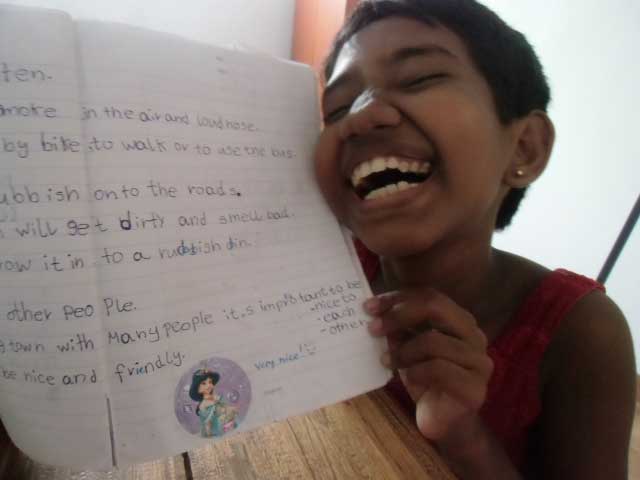 ten.
smoke in the air and loud nose.
by bike to walk or to use the bus.
rubbish onto the roads.
will get dirty and smell bad.
row it in to a rubbish din.
other People.
town with Many people it,s impro tant to be
-nice to
-each
-other
be nice and friendly.
very nice!